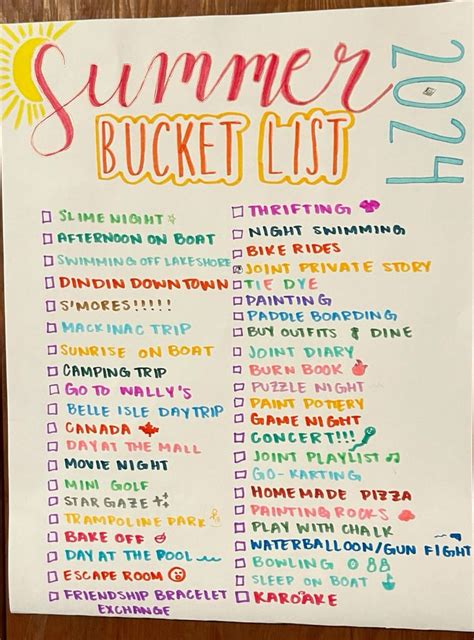 Summer
2024
BUCKET LIST
SLIME NIGHT
AFTERNOON ON BOAT
SWIMMING OFF LAKESHORE
DINDIN DOWNTOWN
S'MORES!!!!!
MACKINAC TRIP
SUNRISE ON BOAT
CAMPING TRIP
GO TO WALLY'S
BELLE ISLE DAYTRIP
CANADA
DAY AT THE MALL
MOVIE NIGHT
MINI GOLF
STAR GAZE
TRAMPOLINE PARK
BAKE OFF
DAY AT THE POOL
ESCAPE ROOM
FRIENDSHIP BRACELET
EXCHANGE
THRIFTING
NIGHT SWIMMING
BIKE RIDES
JOINT PRIVATE STORY
TIE DYE
PAINTING
PADDLE BOARDING
BUY OUTFITS & DINE
JOINT DIARY
BURN BOOK
PUZZLE NIGHT
PAINT POTTERY
GAME NIGHT
CONCERT!!!
JOINT PLAYLIST
GO-KARTING
HOMEMADE PIZZA
PAINTING ROCKS
PLAY WITH CHALK
WATERBALLOON/GUN FIGHT
BOWLING
SLEEP ON BOAT
KAROAKE